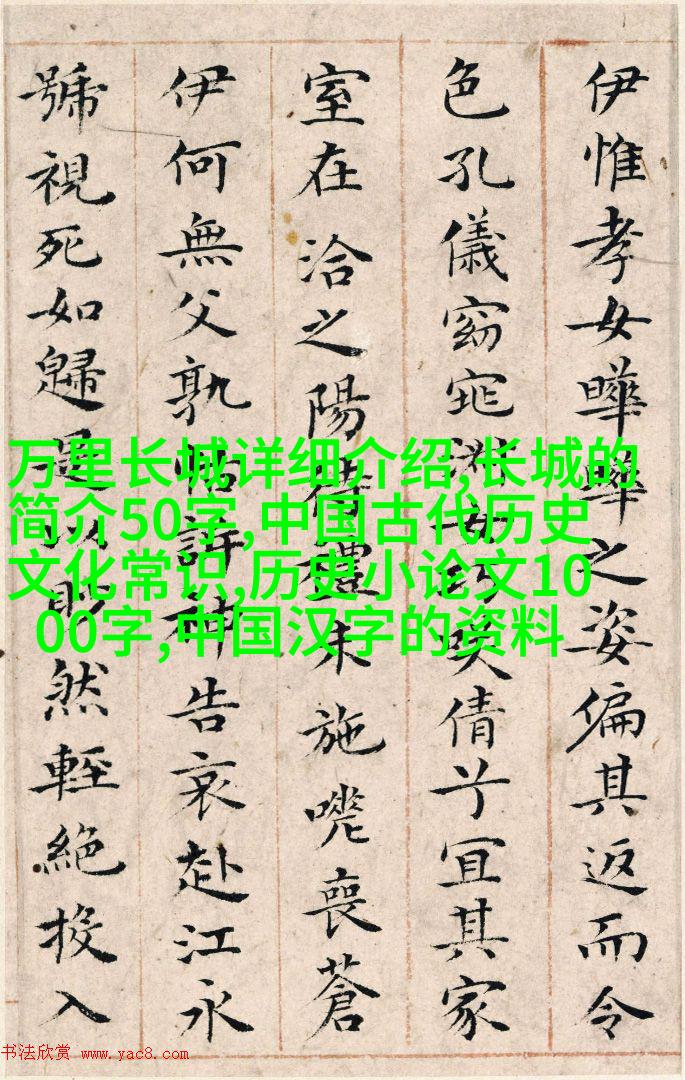 伊惟孝女曄曄之姿偏其返而令
色孔儀窈窕淑女巧咲倩兮宜其家
室在洽之陽待禮未施嗟喪蒼
伊何無父孰怙訴神告哀赴江永
號視死如歸是以眇然輕絕投入
万里长城详细介绍,长城的
简介50字,中国古代历史
文化常识,历史小论文10
00字,中国汉字的资料
书法欣赏 www.yac8.com